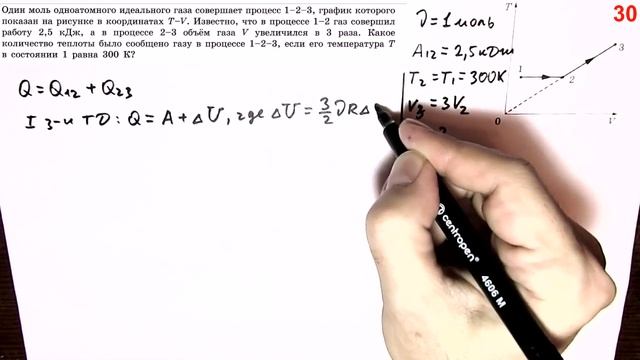 Один моль одноатомного идеального газа совершает процесс 1–2–3, график которого
показан на рисунке в координатах T–V. Известно, что в процессе 1–2 газ совершил
работу 2,5 кДж, а в процессе 2–3 объём газа V увеличился в 3 раза. Какое
количество теплоты было сообщено газу в процессе 1–2–3, если его температура T
в состоянии 1 равна 300 К?
30
ν = 1 моль
A₁₂ = 2,5 кДж
T₂ = T₁ = 300K
V₃ = 3V₂
T
1
2
3
0
V
Q = Q₁₂ + Q₂₃
I з-н ТД: Q = A + ΔU, где ΔU = 3/2 νRΔ
centropen
4606 M